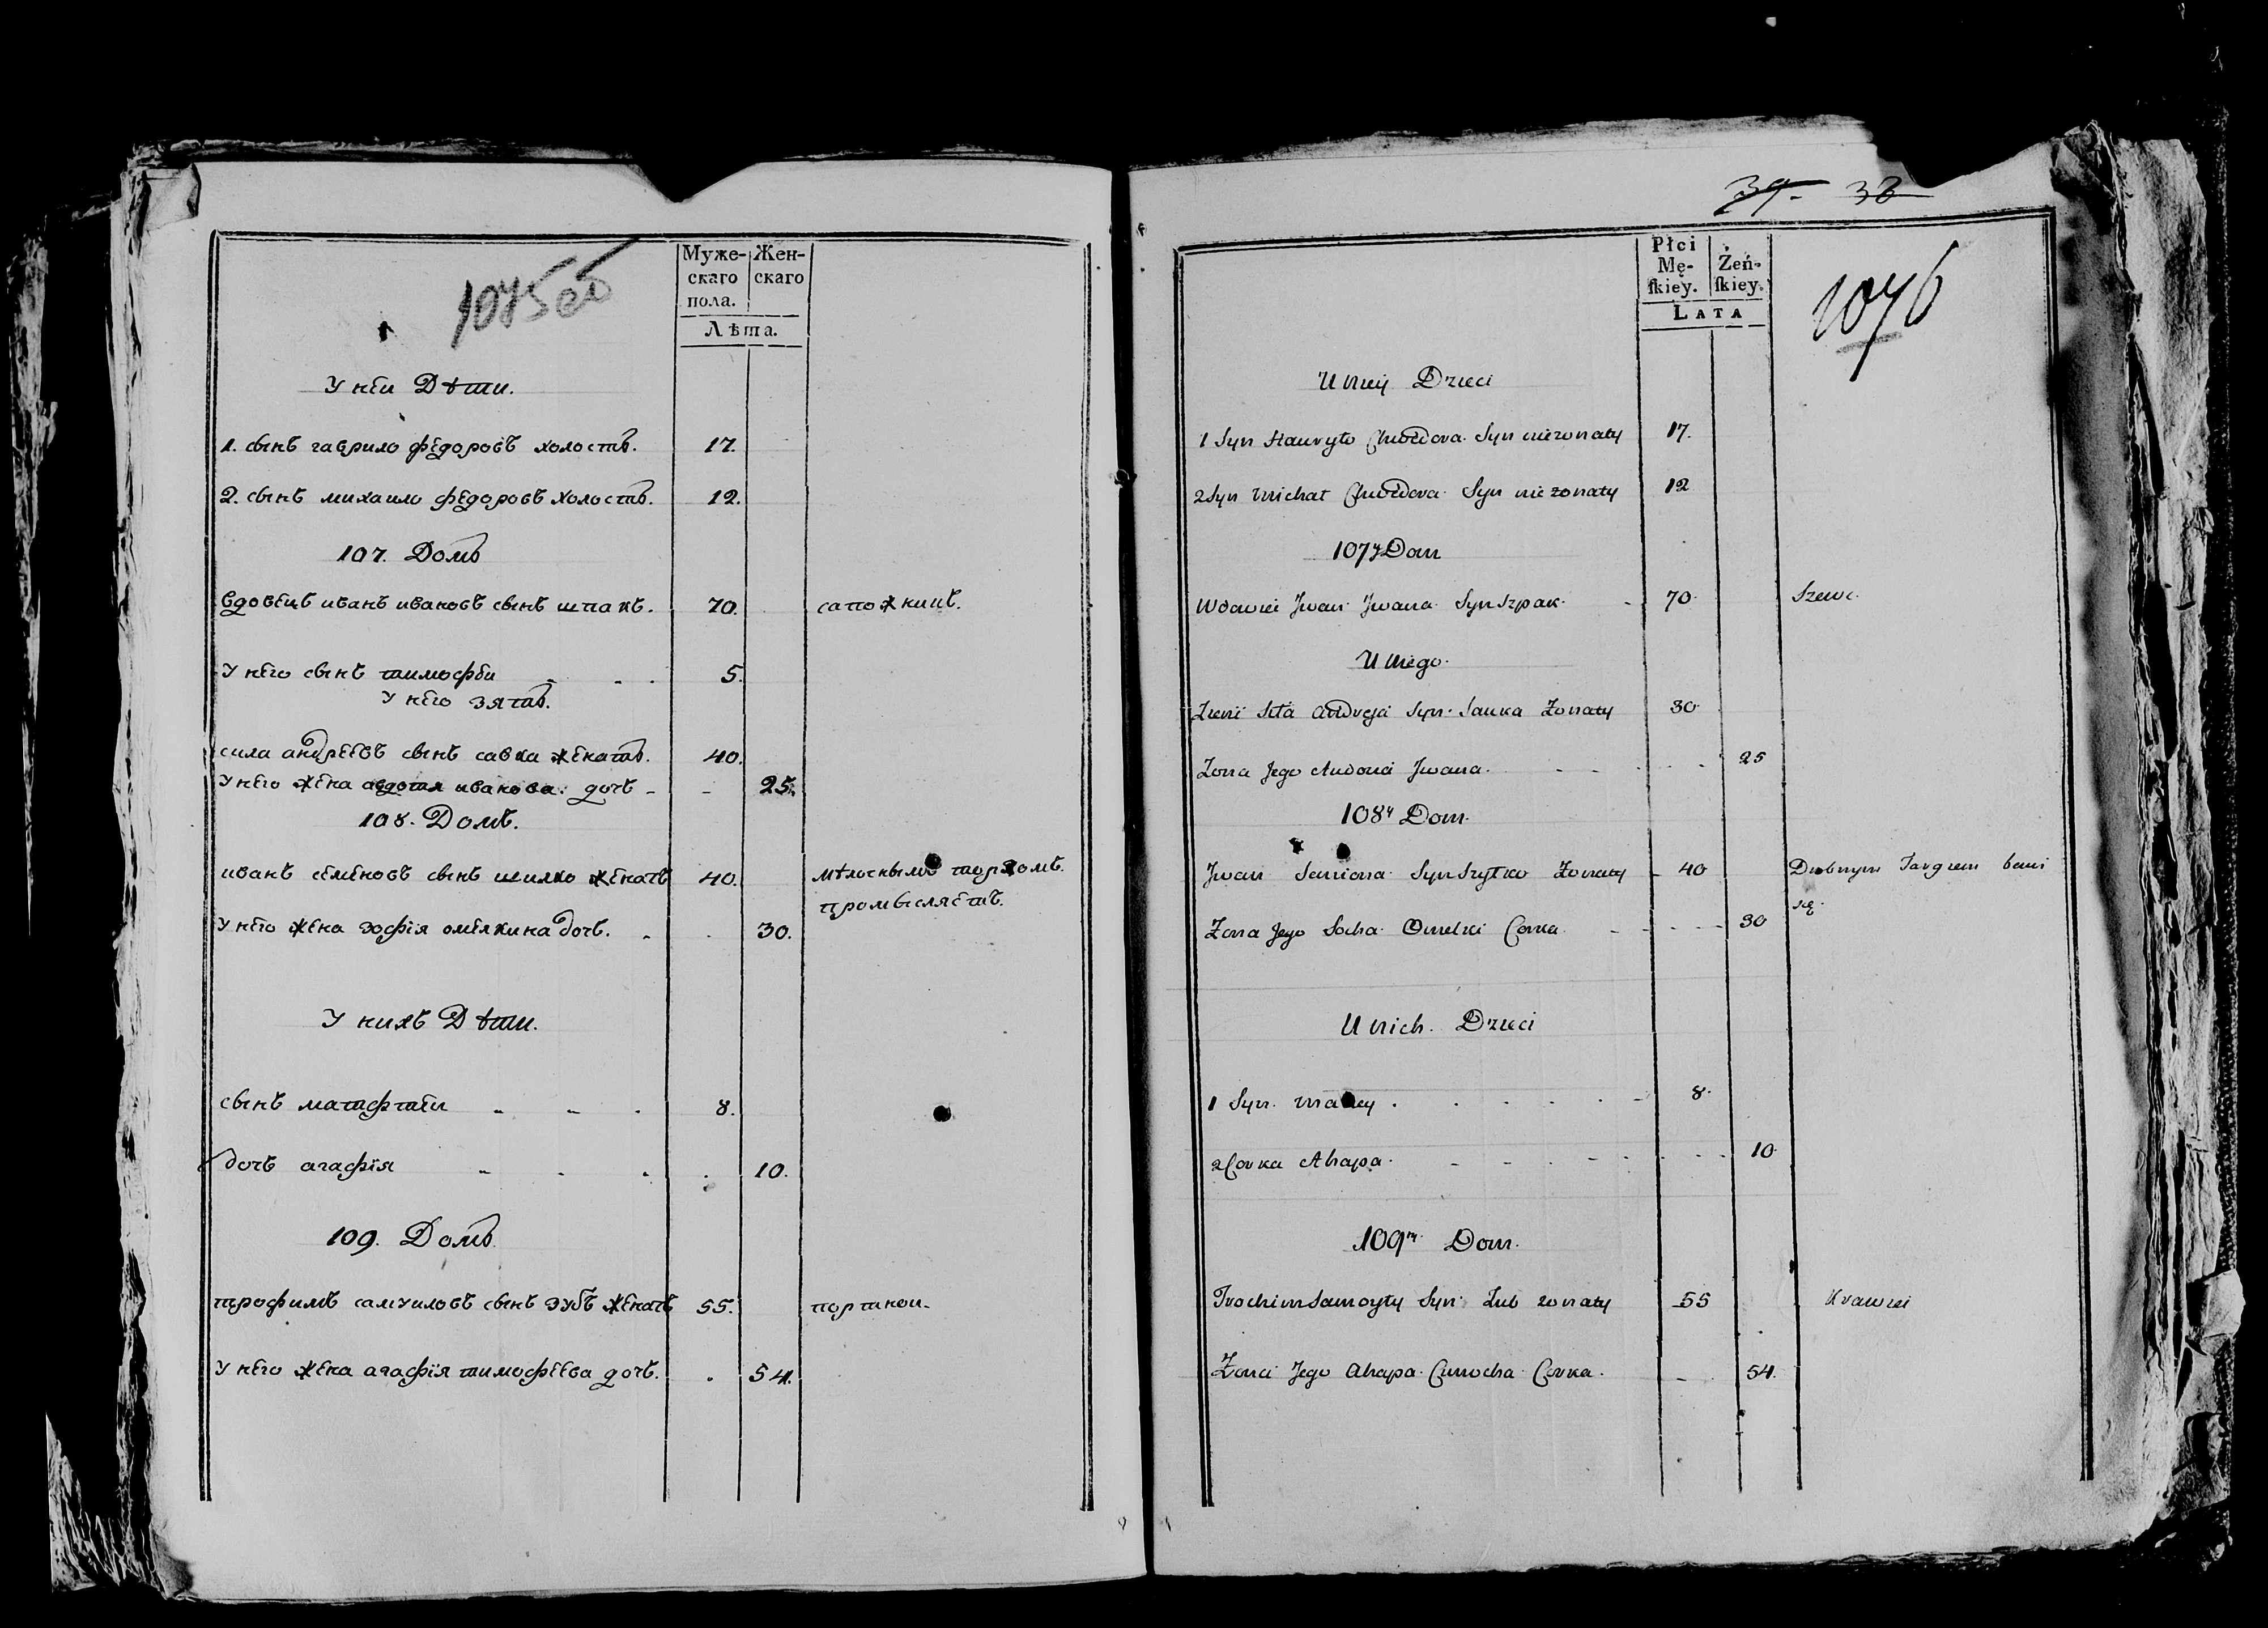 1075об
Муже-
скаго
пола.
Жен-
скаго
Лѣта.
У неи Дѣти.
1. сынъ гаврило федоровъ холостъ. 17.
2. сынъ михаило федоровъ холостъ. 12.
107. Домъ
вдовецъ иванъ ивановъ сынъ шпакъ. 70. сапожникъ.
У него сынъ тимофѣи 5.
У него зять.
сила андреевъ сынъ савка женатъ. 40.
У него жена авдотя иванова дочь 25.
108. Домъ.
иванъ семеновъ сынъ шилко женатъ 40. мѣлочнымъ торгомъ
промысляетъ.
У него жена зофія омелкина дочь. 30.
У нихъ Дѣти.
сынъ матфтеи 8.
дочь агафія 10.
109. Домъ
трофимъ самуиловъ сынъ зубъ женатъ 55. портнои
У него жена агафія тимофеева дочь. 54.
39. 38
1076
Płci
Mę-
ſkiey.
Żeń-
ſkiey.
LATA
U niey Dzieci
1 Syn Hauryło Chwedora Syn niezonaty 17.
2 Syn Michał Chwedora Syn niezonaty 12
107y Dom
Wdowiec Jwan Jwana Syn Szpak 70 Szewc
U niego
Zienć Siła Andreja Syn Sauka Zonaty 30
Zona Jego Audocia Jwana 25
108y Dom
Jwan Semiona Syn Szyłko Zonaty 40 Drobnym Targiem bawi
się
Zona Jego Socha Omelki Corka 30
U nich Dzieci
1 Syn 8.
2 Corka Ahapa 10
109ty Dom
Trochim Samoyły Syn Zub zonaty 55 Krawiec
Zona Jego Ahapa Cimocha Corka. 54.